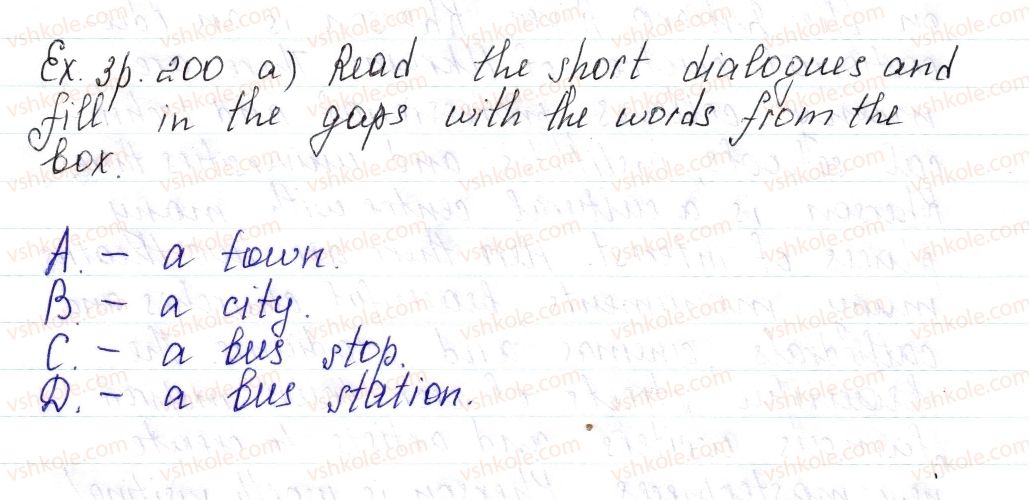 Ex. 3p. 200 a) Read the short dialogues and
fill in the gaps with the words from the
box.
A. – a town.
B. – a city.
C. – a bus stop.
D. – a bus station.